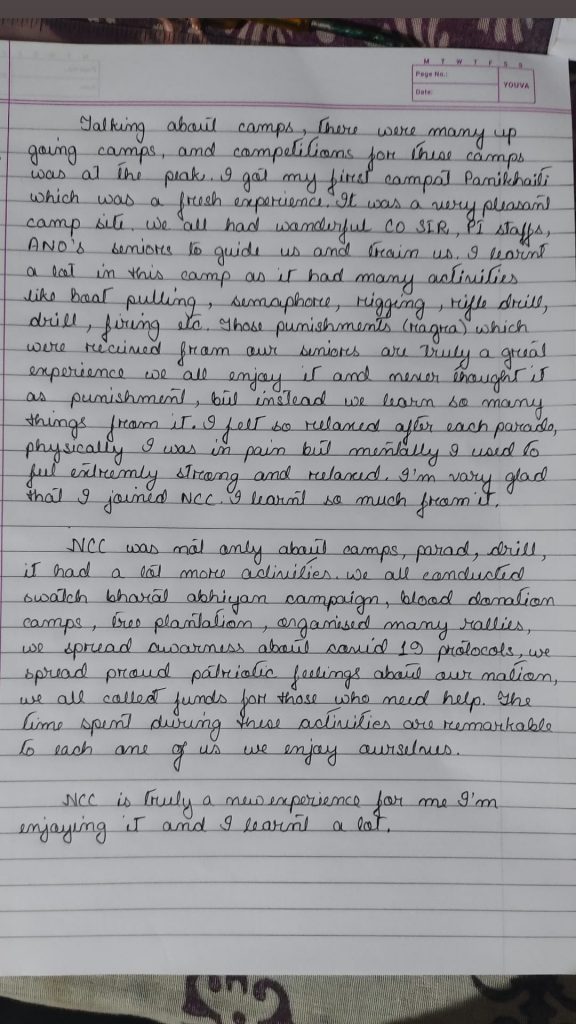 M T W T F S S
Page No.:
Date:
YOUVA
Talking about camps, there were many up
going camps, and competitions for these camps
was at the peak. I got my first campat Panikhaiti
which was a fresh experience. It was a very pleasant
camp site. we all had wonderful CO SIR, PI staffs,
ANO's seniors to guide us and train us. I learnt
a lot in this camp as it had many activities
like boat pulling, semaphore, rigging, rifle drill,
drill, firing etc. Those punishments (ragra) which
were recived from our seniors are truly a great
experience we all enjoy it and never thought it
as punishment, but instead we learn so many
things from it. I felt so relaxed after each parade,
physically I was in pain but mentally I used to
feel extremly strong and relaxed. I'm vary glad
that I joined NCC. I learnt so much from it.
NCC was not only about camps, parad, drill,
it had a lot more activities. we all conducted
swatch bharat abhiyan campaign, blood donation
camps, tree plantation, organised many rallies,
we spread awarness about covid 19 protocols, we
spread proud patriotic feelings about our nation,
we all collect funds for those who need help. The
time spent during these activities are remarkable
to each one of us we enjoy ourselves.
NCC is truly a new experience for me I'm
enjoying it and I learnt a lot.